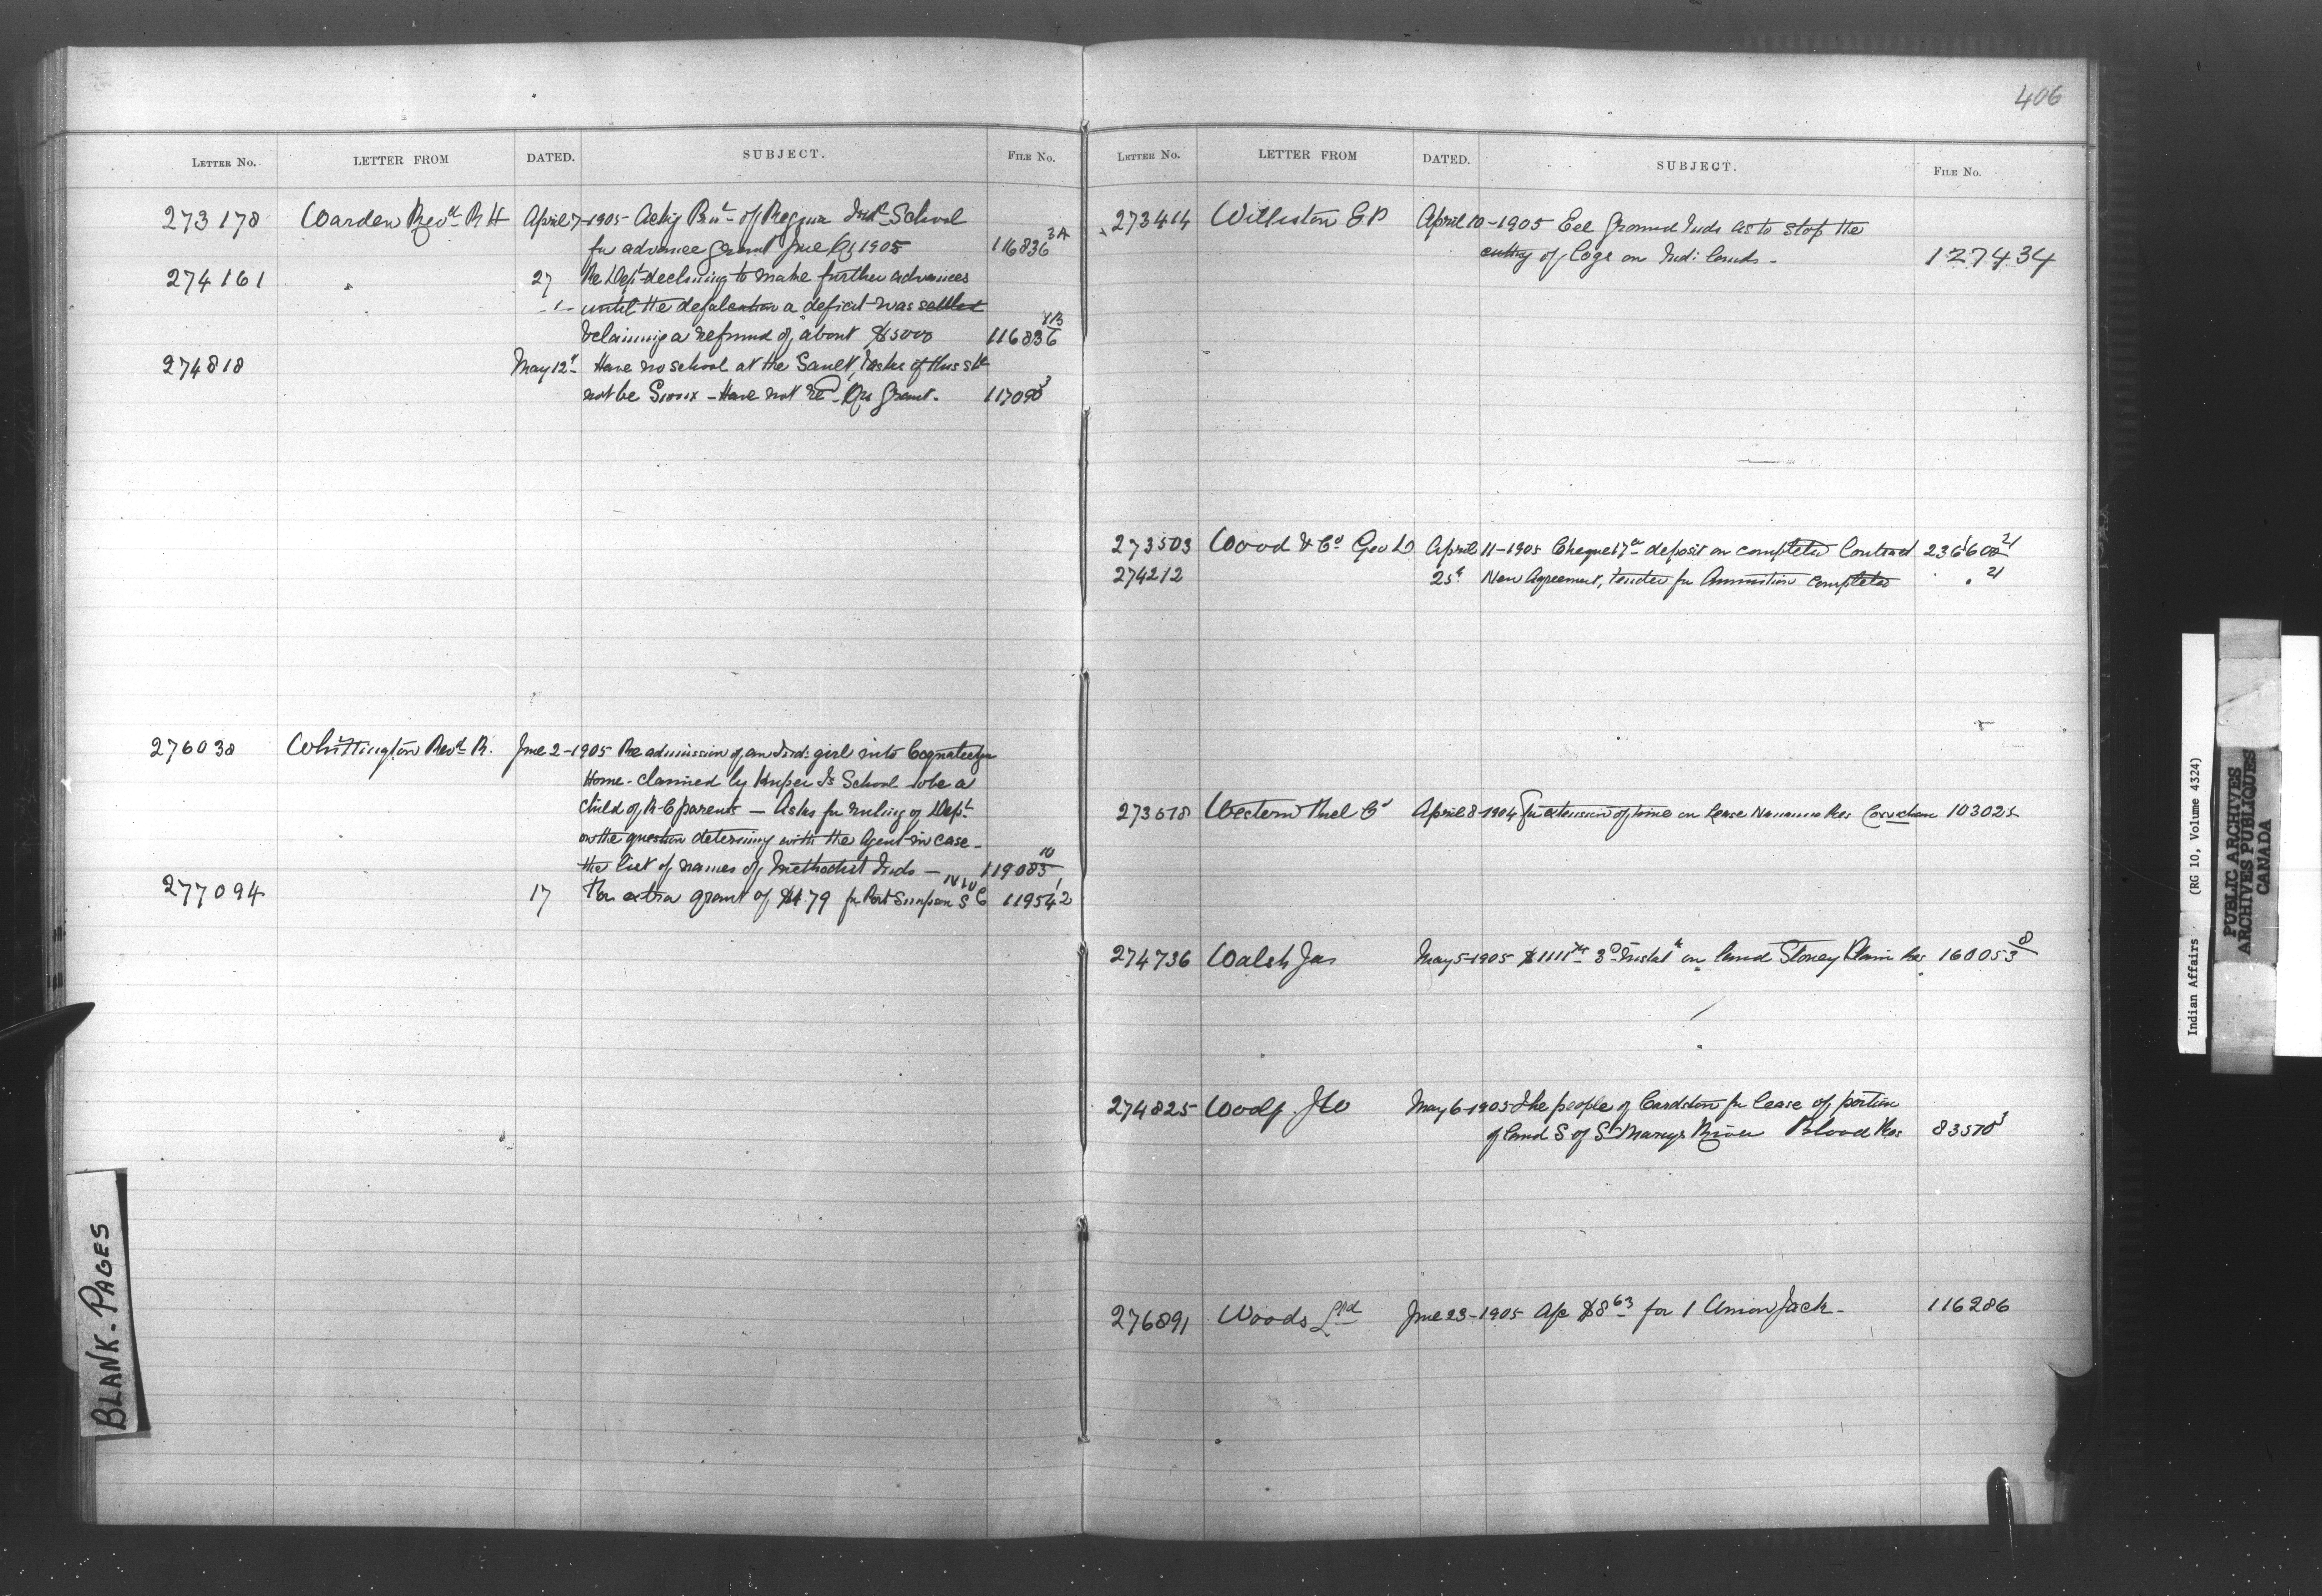 406
LETTER NO. LETTER FROM DATED. SUBJECT. FILE NO.
273178 Warden Revd R H April 7-1905- Actig Prinl of Regina Indl School
for advance grant June Qr 1905 116836 3A
274161 " 27 Re Dept declining to make further advances
until the defalcation a deficit was settled
& claiming a refund of about $5000 116836
274818 May 12th Have no school at the Sault, Tasks of this
not be Sioux - Have not recd Qr Grant. 117090 3
276038 Whittington Revd R. June 2-1905 Re admission of an Ind: girl into Coqualeetza
Home - claimed by Kuper Is School to be a
child of R C parents - Asks for ruling of Dept
on the question determing with the Agent in case -
the list of names of Methodist Inds - 119083 10
277094 17 For extra grant of $479 for Port Simpson 119542 1
LETTER NO. LETTER FROM DATED. SUBJECT. FILE NO.
273414 Williston E P April 10-1905 Eel Ground Inds as to stop the
cutting of logs on Indi lands - 127434
273503 Wood & Co Geo D April 11-1905 Cheque deposit on completed Contract 236600 21
274212 25th New Agreement, tender for Ammunition completed " 21
273678 Western Fuel Co April 8-1904 for extension of time on lease Nanaimo Res Cowichan 103025
274736 Walsh Jas May 5-1905 $1111 3d Instalt on land Stoney Plain Res 160053 8
274825 Woolf J W May 6-1905 The people of Cardston for lease of portion
of land S of St Marys River Blood Res 83570 3
276891 Woods Ltd June 23-1905 A/c $8 63 for 1 Union Jack - 116286
BLANK-PAGES
Indian Affairs (RG 10, Volume 4324)
PUBLIC ARCHIVES
ARCHIVES PUBLIQUES
CANADA